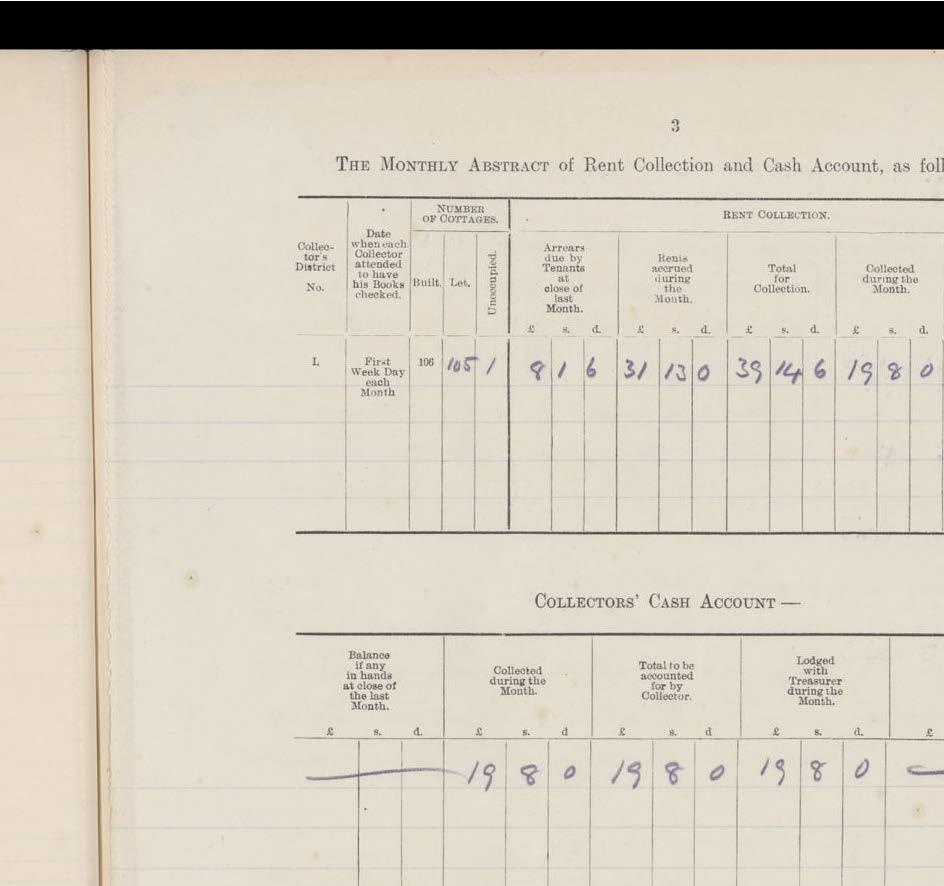 3
THE MONTHLY ABSTRACT of Rent Collection and Cash Account, as foll
Collec-
tor's
District
No.
Date
when each
Collector
attended
to have
his Books
checked.
NUMBER
OF COTTAGES.
Built.
Let.
Unoccupied.
RENT COLLECTION.
Arrears
due by
Tenants
at
close of
last
Month.
£ s. d.
Rents
accrued
during
the
Month.
£ s. d.
Total
for
Collection.
£ s. d.
Collected
during the
Month.
£ s. d.
L
First
Week Day
each
Month
106 105 1 8 1 6 31 13 0 39 14 6 19 8 0
COLLECTORS' CASH ACCOUNT —
Balance
if any
in hands
at close of
the last
Month.
£ s. d.
Collected
during the
Month.
£ s. d
Total to be
accounted
for by
Collector.
£ s. d
Lodged
with
Treasurer
during the
Month.
£ s. d.
£
— 19 8 0 19 8 0 19 8 0 —